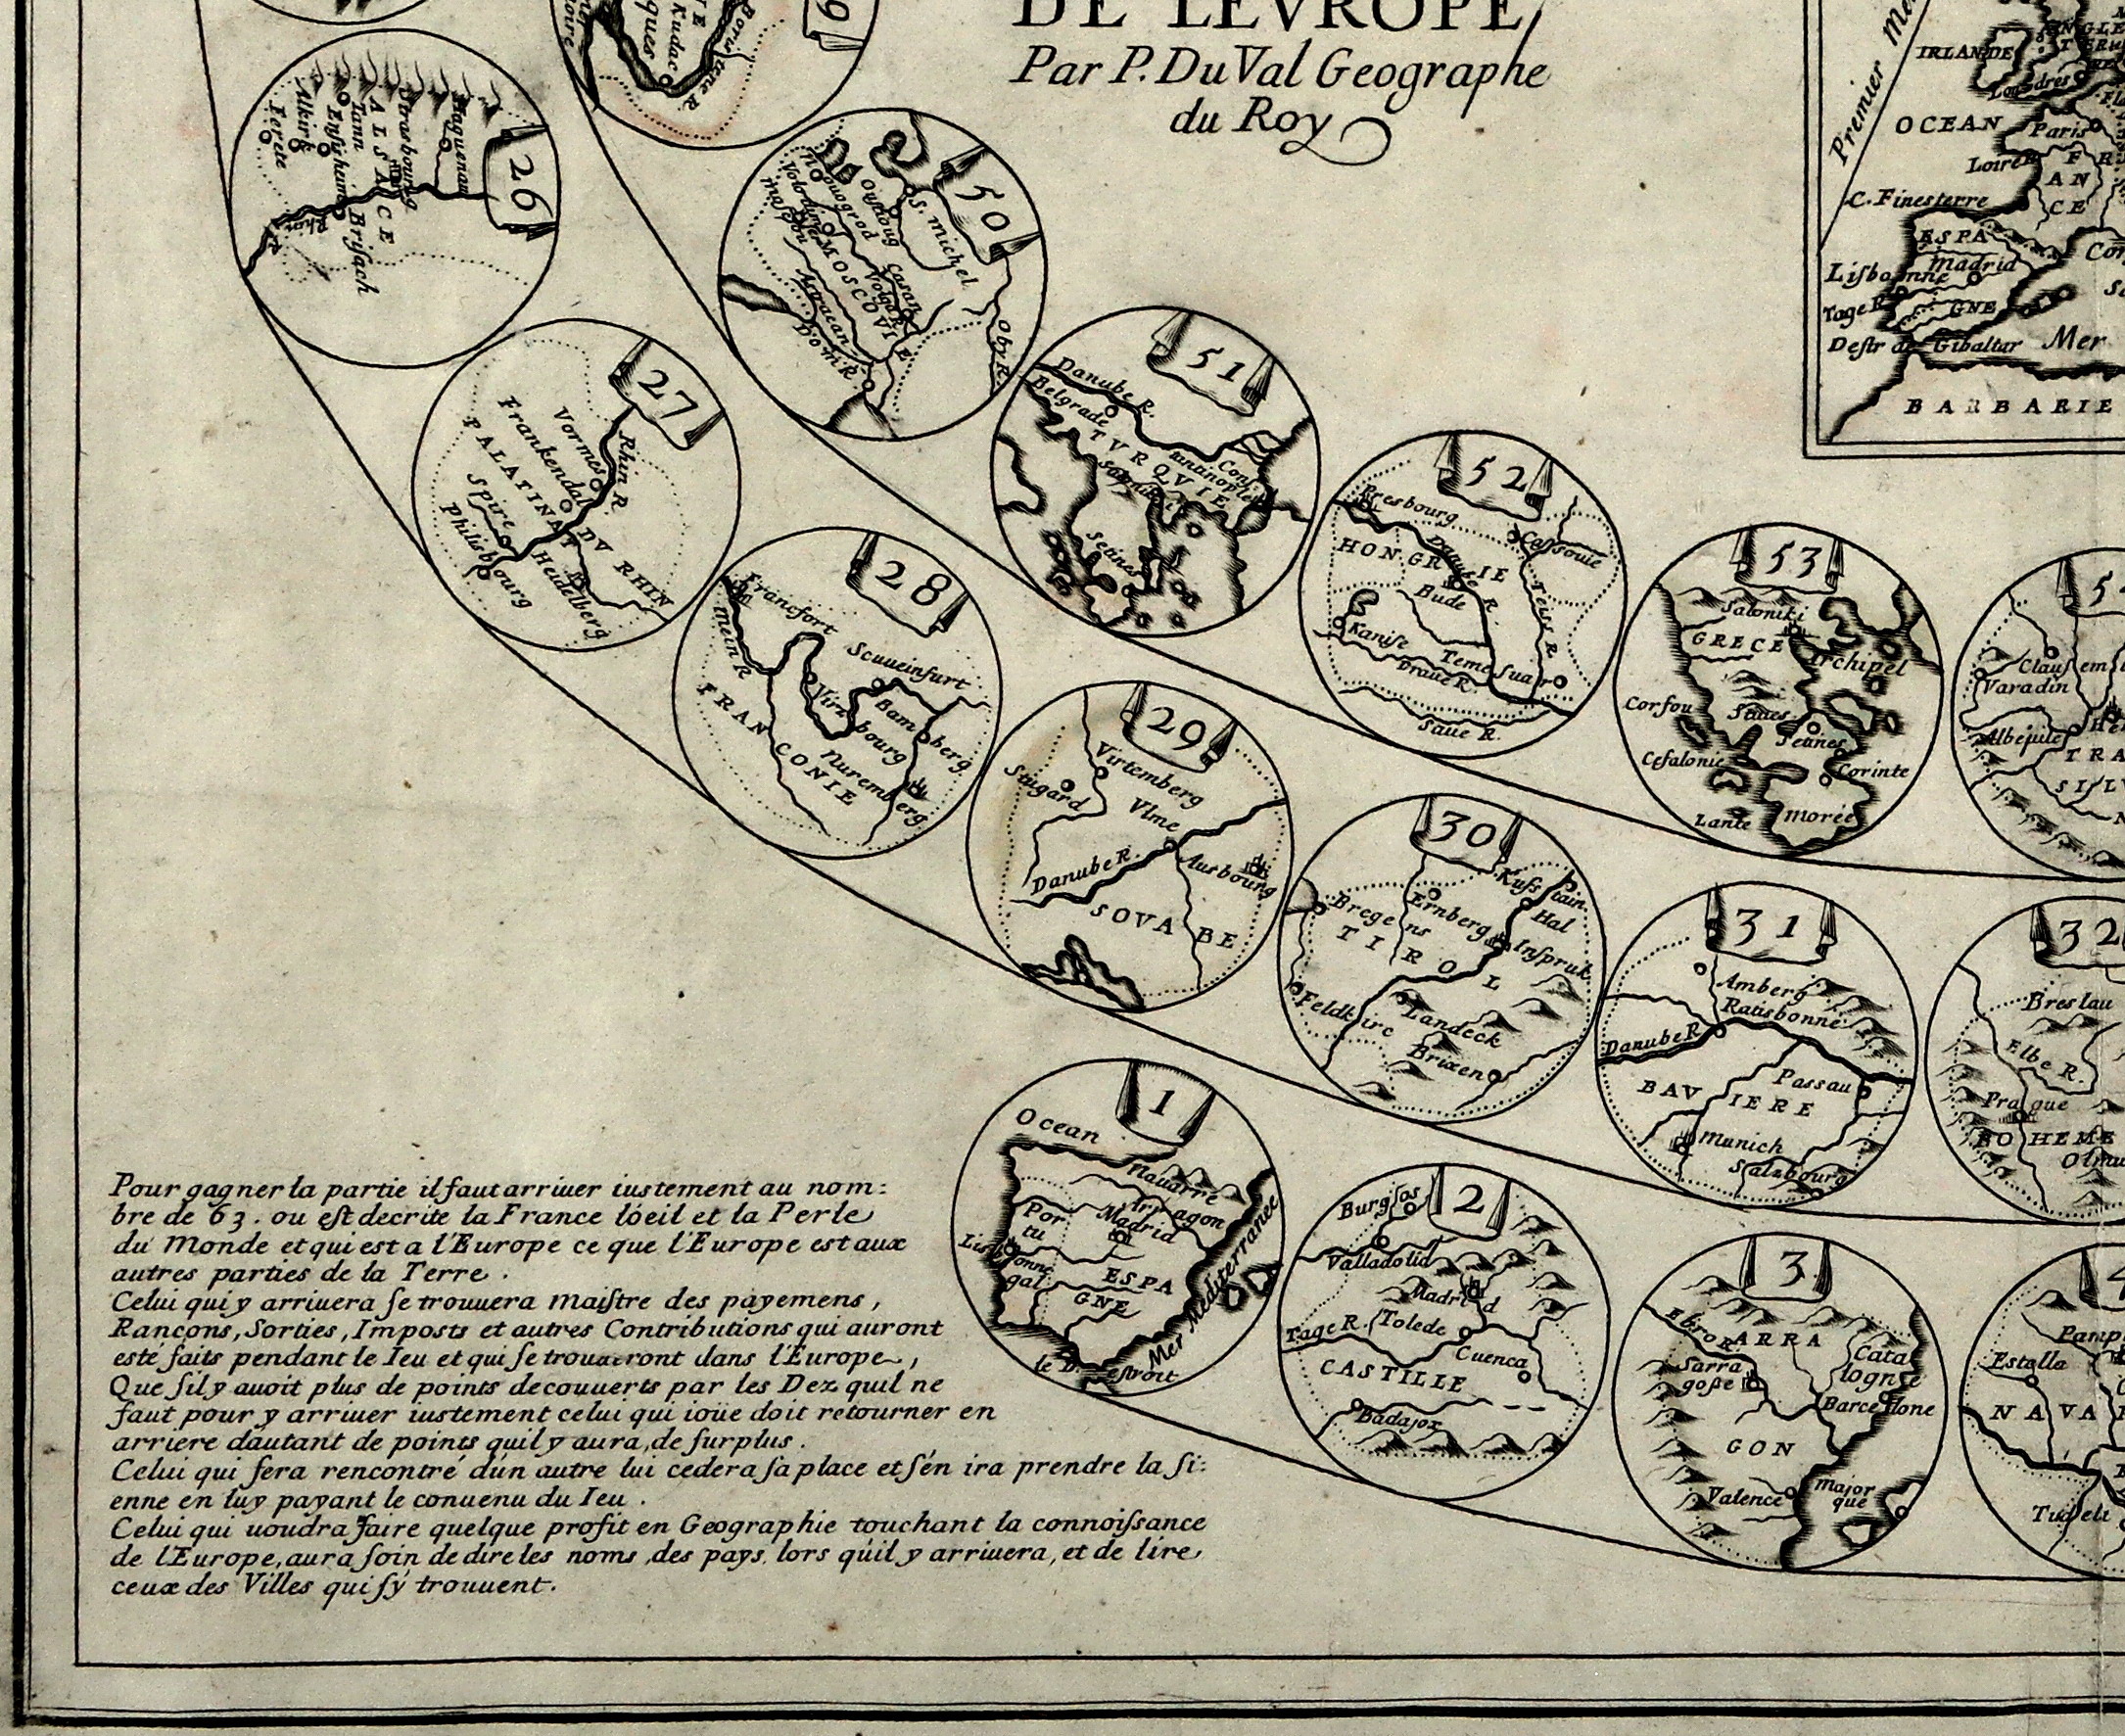 DE LEVROPE,
Par P. DuVal Geographe
du Roy
Premier
IRLANDE
Londres
OCEAN
Paris
Loire
FR
AN
CE
C. Finesterre
ESPA
Madrid
GNE
Lisbonne
Tage R
Destr de Gibaltar
Mer
BARBARIE
Kudac
ques
26
Haguenau
Strasbourg
ALSACE
Tann
Ensisheim
Brisach
Alkirk
Ferete
Rhin
27
Rhin R.
Vormes
Frankendal
PALATINAT DV RHIN
Spire
Philisbourg
Heidelberg
28
Francfort
Mein R
Scuueinfurt
Virzbourg
Bamberg
Nuremberg
FRANCONIE
29
Virtemberg
Stugard
Vlme
Danube R.
Ausbourg
SOVABE
30
Kufstain
Hal
Ernberg
Bregens
Inspruk
TIROL
Feldkirc
Landeck
Brixen
31
Amberg
Ratisbonne
Danube R
BAVIERE
Passau
Munich
Salzbourg
32
Breslau
Elbe R.
Prague
BOHEME
50
S. Michel
MOSCOVIE
Casan
Volga R
Astracan
Oby R.
51
Danube R.
Belgrade
TVRQVIE
Constantinople
52
Presbourg
Cassouie
HONGRIE
Danube R.
Bude
Teiss R.
Kanise
Temesuar
Draue R.
Saue R.
53
Saloniki
GRECE
Archipel
Corfou
Setines
Cefalonie
Corinte
Morée
Varadin
1
Ocean
Nauarre
Arragon
Portugal
Madrid
Lisbonne
ESPAGNE
Mer Mediterranee
le Destroit
2
Burgos
Valladolid
Madrid
Tage R.
Tolede
Cuenca
CASTILLE
Badajox
3
Ebro R.
ARRAGON
Sarragosse
Catalogne
Barcellone
Valence
Majorque
Estella
NAVA
Pour gagner la partie il faut arriuer iustement au nom:
bre de 63. ou est decrite la France lóeil et la Perle
du Monde et qui est a l'Europe ce que l'Europe est aux
autres parties de la Terre.
Celui qui y arriuera se trouuera Maistre des payemens,
Rancons, Sorties, Imposts et autres Contributions qui auront
esté faits pendant le Ieu et qui se trouueront dans l'Europe,
Que sil y auoit plus de points decouuerts par les Dez quil ne
faut pour y arriuer iustement celui qui ioüe doit retourner en
arriere dáutant de points quil y aura, de surplus.
Celui qui sera rencontré dún autre lui cedera sa place et sén ira prendre la si:
enne en luy payant le conuenu du Ieu.
Celui qui uoudra faire quelque profit en Geographie touchant la connoissance
de l'Europe, aura soin de dire les noms des pays, lors qúil y arriuera, et de lire
ceux des Villes qui sý trouuent.